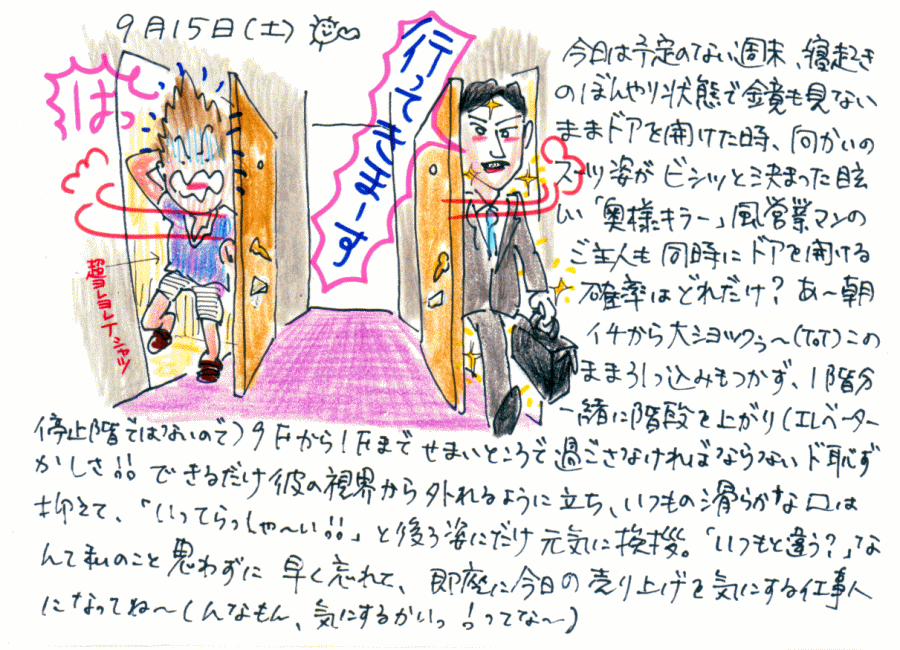 9月15日(土)
はっ
行ってきまーす
超ヨレヨレTシャツ
今日は予定のない週末、寝起き
のぼんやり状態で鏡も見ない
ままドアを開けた時、向かいの
スーツ姿がビシッと決まった眩
い「奥様キラー」風営業マンの
ご主人も同時にドアを開ける
確率はどれだけ?あ〜朝
イチから大ショックぅ〜(ToT)この
まま引っ込みもつかず、1階分
一緒に階段を上がり(エレベーター
停止階ではないので)9Fから1Fまでせまいところで過ごさなければならないド恥ず
かしさ!!できるだけ彼の視界から外れるように立ち、いつもの滑らかな口は
抑えて、「いってらっしゃ〜い!!」と後ろ姿にだけ元気に挨拶。「いつもと違う?」な
んて私のこと思わずに早く忘れて、即座に今日の売り上げを気にする仕事人
になってね〜(んなもん、気にするかいっ!ってな〜)